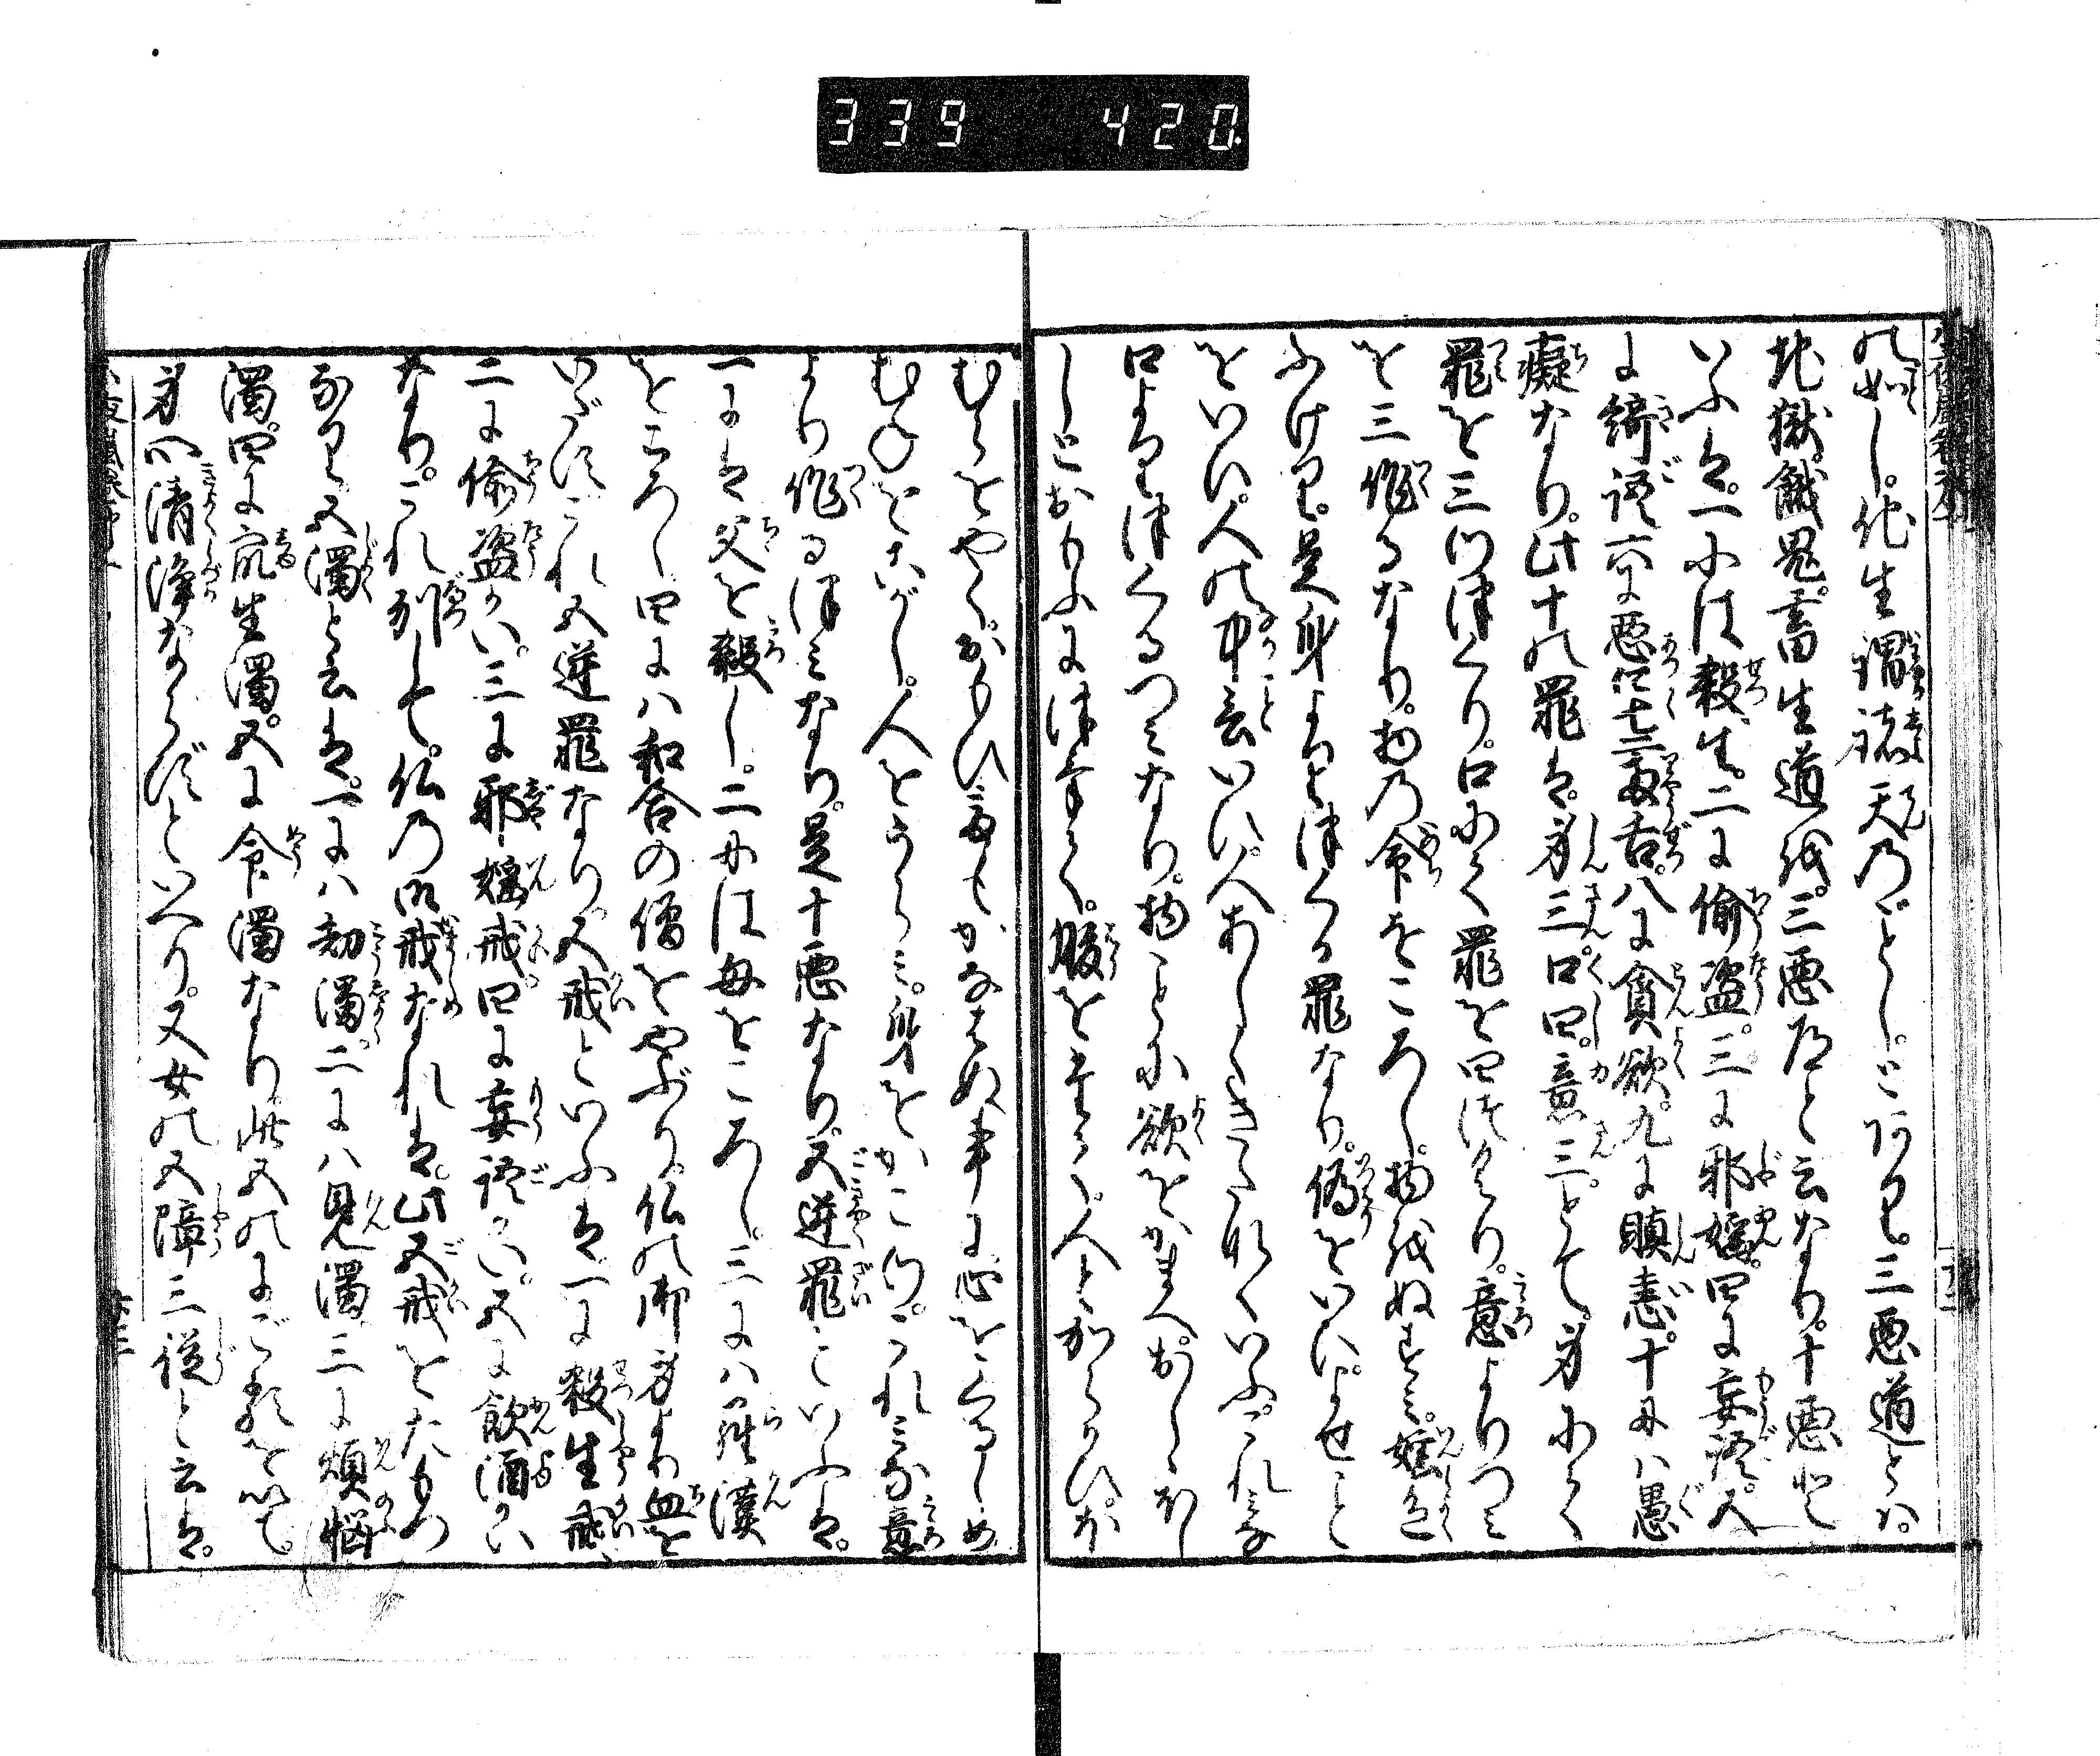 339 420
の如し。他生謂諸天のごとし。とあり。三悪道とハ。
地獄餓鬼。畜生道を。三悪たうと云なり。十悪と
いふは。一には殺生。二に偸盗。三に邪婬。四に妄語。五
に綺語六に悪口七に両舌。八に貪欲。九に瞋恚。十にハ愚
癡なり。此十の罪は。身三。口四。意三。とて。身にて
罪を三ツ津くり。口にて罪を四ツ津くり。意よりつミ
を三作るなり。物の命をころし。物をぬすミ。婬色
ふける。是身より津くる罪なり。偽をいひ。よせこと
をいひ。人の中言いひ。人あしくきたなくいふ。これミな
口より津くるつミなり。物ことに欲をかまへ。おしくほし
しとおもふに津きて。腹をたて。人とからかひ。ほ
むらをやく。おもひ寄てもかなはぬ事に心をくるしめ
むねをこがし。人をうらミ。身をかこつ。これミな意
より作る津ミなり。是十悪なり。五逆罪といふは。
一には父を殺し。二には母をころし。三にハ羅漢
をころし四にハ和合の僧をやぶり。仏の御身より血を
いだすこれ五逆罪なり。五戒といふは一に殺生戒、
二に偸盗かい。三に邪婬戒。四に妄語かい。五に飲酒かい
なり。これ別して。仏の御戒なれは。此五戒をたもつ
なり。五濁と云は。一にハ劫濁。二にハ見濁三に煩悩
濁。四に衆生濁。五に命濁なり此五のにごりを以て。
身ハ清浄ならずといへり。又女の五障三従と云は。